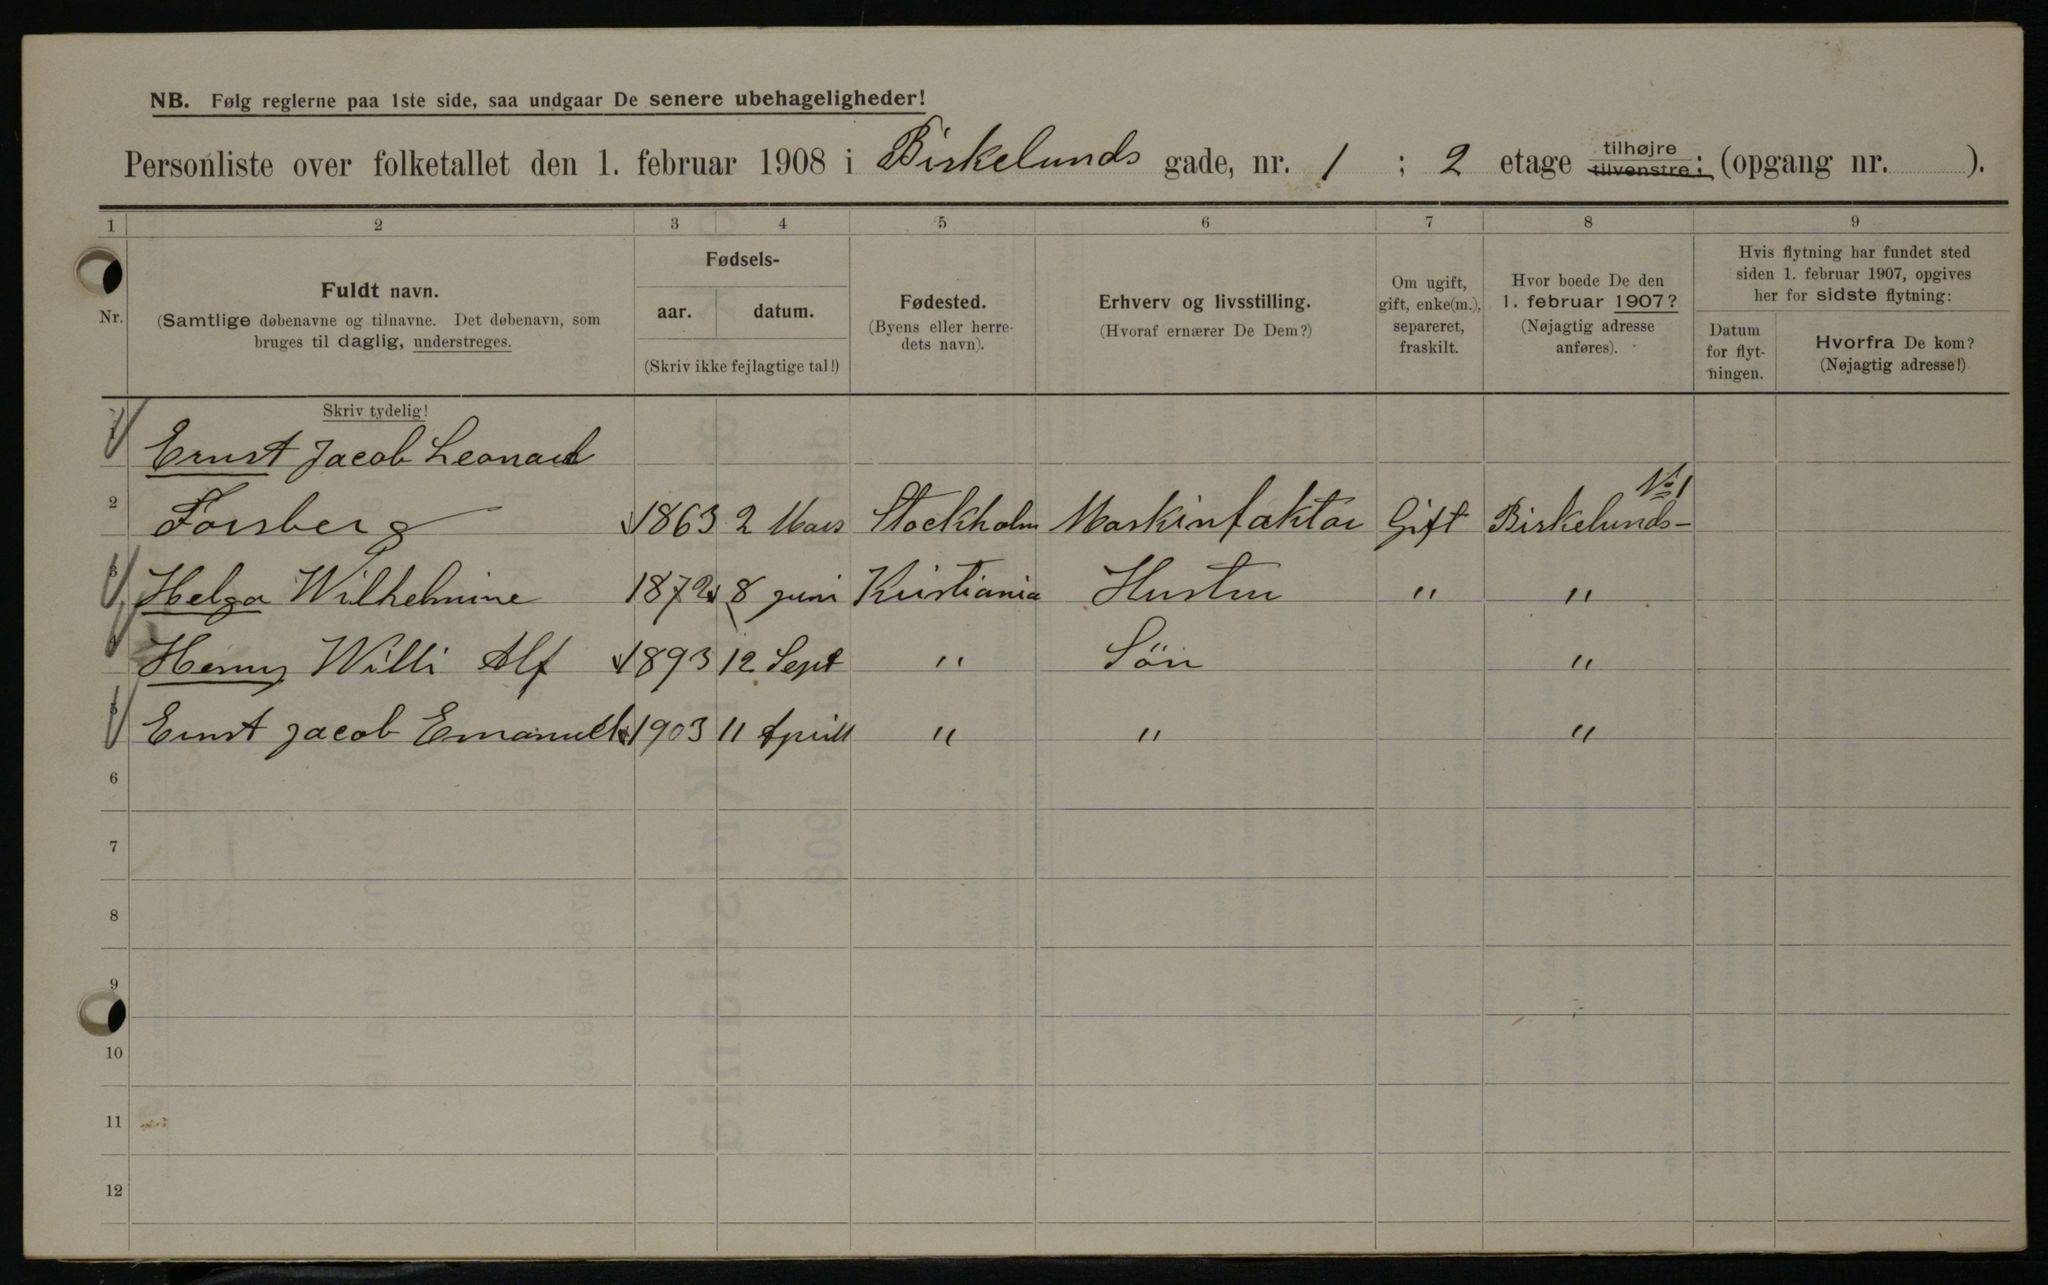 NB. Følg reglerne paa 1ste side, saa undgaar De senere ubehageligheder!
Personliste over folketallet den 1. februar 1908 i Birkelunds gade, nr. 1 ; 2 etage tilhøjre tilvenstre; (opgang nr. ).
1 2 3 4 5 6 7 8 9
Nr.
Fuldt navn.
(Samtlige døbenavne og tilnavne. Det døbenavn, som
bruges til daglig, understreges.
Fødsels-
aar. datum.
(Skriv ikke fejlagtige tal!)
Fødested.
(Byens eller herre-
dets navn).
Erhverv og livsstilling.
(Hvoraf ernærer De Dem?)
Om ugift,
gift, enke(m.),
separeret,
fraskilt.
Hvor boede De den
1. februar 1907?
(Nøjagtig adresse
anføres).
Hvis flytning har fundet sted
siden 1. februar 1907, opgives
her for sidste flytning:
Datum
for flyt-
ningen.
Hvorfra De kom?
(Nøjagtig adresse!)
Skriv tydelig!
1 Ernst Jacob Leonard
No 1
2 Forsberg 1863 2 Mars Stockholm Maskinfaktor Gift Birkelunds-
3 Helga Wilhelmine 1872 8 juni Kristiania Hustru " "
4 Henry Willi Alf 1893 12 Sept " Sön "
5 Ernst Jacob Emanuel 1903 11 Aprill " " "
6
7
8
9
10
11
12